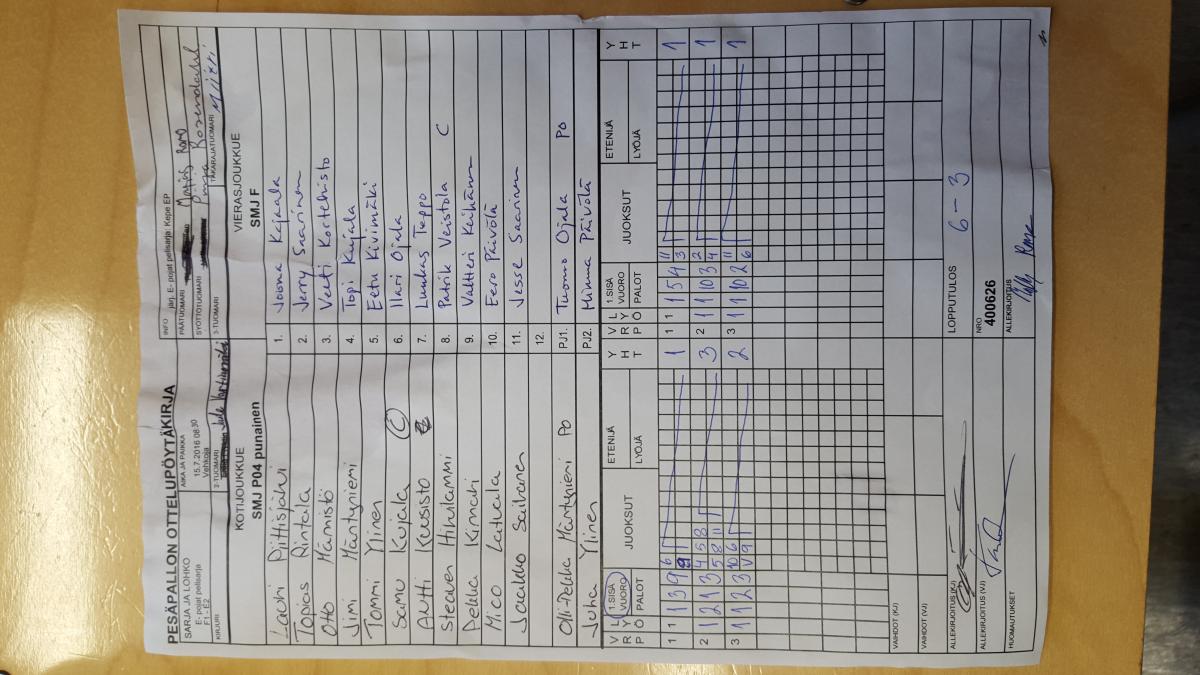 PESÄPALLON OTTELUPÖYTÄKIRJA
SARJA JA LOHKO
E- pojat pelisarja
F1 - E2
KIRJURI
AIKA JA PAIKKA
15.7.2016 08:30
Vehkoja
2-TUOMARI
INFO järj. E- pojat pelisarja Kepe EP
PÄÄTUOMARI Matias Romo
SYÖTTÖTUOMARI Pinja Rosendahl
3-TUOMARI
TAKARAJATUOMARI
KOTIJOUKKUE
SMJ P04 punainen
VIERASJOUKKUE
SMJ F
Lauri Piittisjärvi 1. Joona Kajaala
Topias Rintala 2. Jerry Saarinen
Otto Männistö 3. Veeti Kortehisto
Jimi Mäntyniemi 4. Topi Kujala
Tommi Ylinen 5. Eetu Kivimäki
Samu Kujala C 6. Ilari Ojala
Antti Kuusisto 7. Luukas Teppo
Steaven Hihnlammi 8. Patrik Veistola C
Pekka Kimari 9. Valtteri Keihänen
Mico Latvala 10. Eero Päivölä
Jaakko Seilonen 11. Jesse Saarinen
12.
Olli-Pekka Mäntyniemi Po PJ1. Tuomo Ojala Po
Juha Ylinen PJ2. Minna Päivölä
V L 1.SISÄ JUOKSUT ETENIJÄ Y V L 1.SISÄ JUOKSUT ETENIJÄ Y
R Y VUORO H R Y VUORO H
P Ö PALOT LYÖJÄ T P Ö PALOT LYÖJÄ T
1 1 1 3 9 6 9 1 1 1 1 5 4 11 3 1
2 1 2 1 3 4 5 8 5 8 11 3 2 1 1 10 3 2 4 1
3 1 1 2 3 10 6 V 9 2 3 1 1 10 2 11 6 1
VAIHDOT (KJ)
VAIHDOT (VJ)
ALLEKIRJOITUS (KJ)
ALLEKIRJOITUS (VJ)
HUOMAUTUKSET
LOPPUTULOS 6 - 3
NRO
400626
ALLEKIRJOITUS